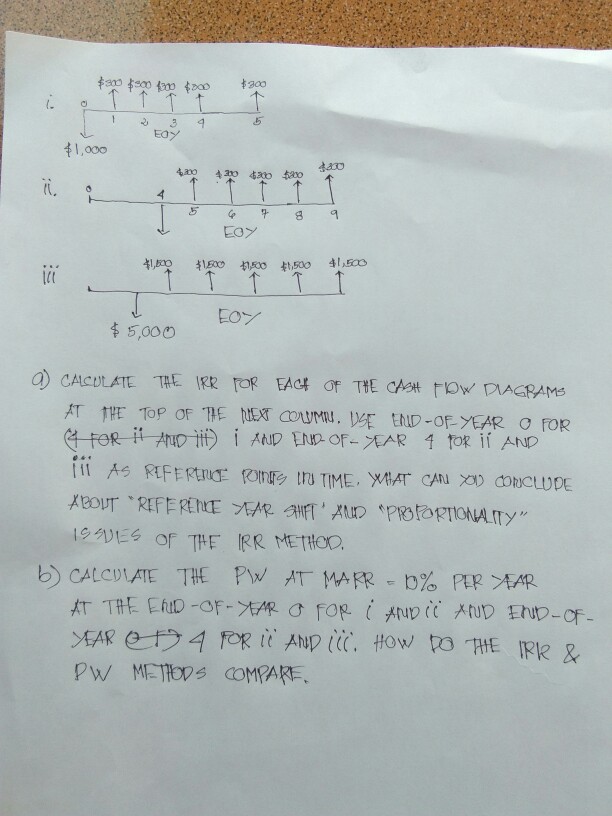 $300 $300 $300 $300 $300
i. 0 1 2 3 4 5
EOY
$1,000
$300 $300 $300 $300 $300
ii. 0 4 5 6 7 8 9
EOY
$1,500 $1,500 $1,500 $1,500 $1,500
iii
EOY
$5,000
a) CALCULATE THE IRR FOR EACH OF THE CASH FLOW DIAGRAMS
AT THE TOP OF THE NEXT COLUMN. USE END-OF-YEAR 0 FOR
(4 FOR ii AND iii) i AND END-OF-YEAR 4 FOR ii AND
iii AS REFERENCE POINTS IN TIME. WHAT CAN YOU CONCLUDE
ABOUT "REFERENCE YEAR SHIFT' AND "PROPORTIONALITY"
ISSUES OF THE IRR METHOD.
b) CALCULATE THE PW AT MARR = 10% PER YEAR
AT THE END-OF-YEAR 0 FOR i AND ii AND END-OF-
YEAR 4 FOR ii AND iii. HOW DO THE IRR &
PW METHODS COMPARE.